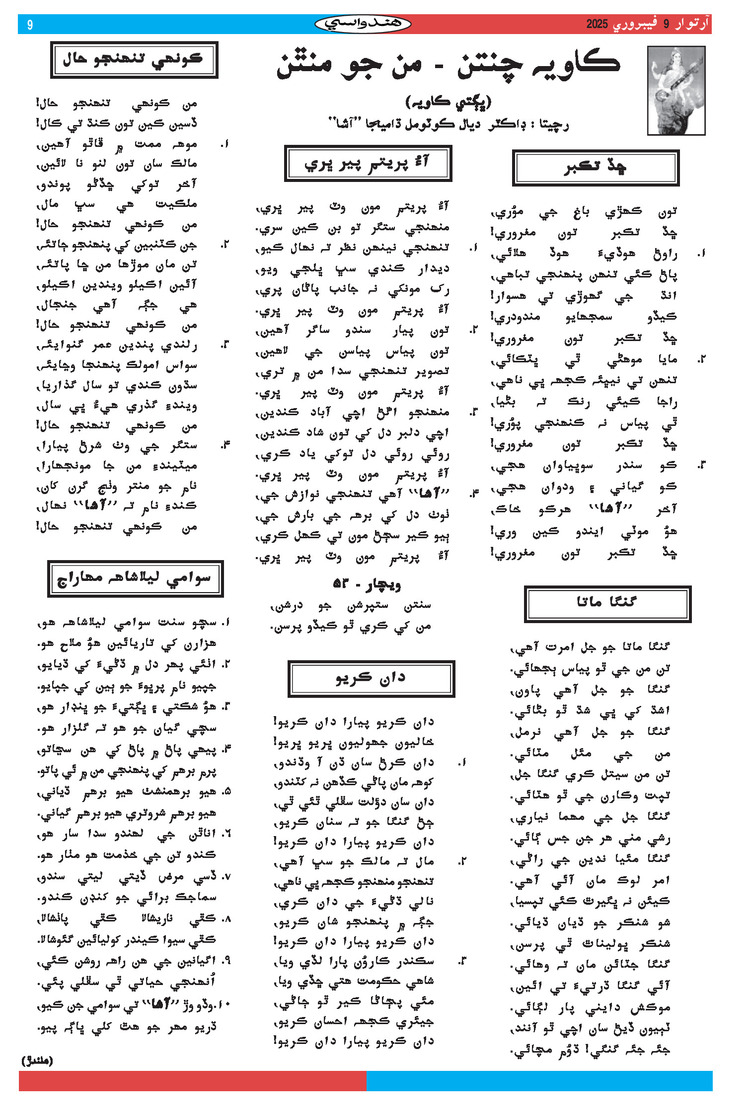 آرتوار 9 فيبروري 2025
هندواسي
9
ڪاويہ چنتن - من جو منٿن
(ڀڳتي ڪاويہ)
رچيتا : ڊاڪٽر ديال ڪوٽومل ڌاميجا ”آشا“
ڇڏ تڪبر
تون ڪهڙي باغ جي موُري،
ڇڏ تڪبر تون مغروري!
۱. راوڻ هوڏيءَ هوڏ هلائي،
پاڻ ڪئي تنهن پنهنجي تباهي،
انڌ جي گهوڙي تي هسوار!
ڪيڏو سمجهايو مندودري!
ڇڏ تڪبر تون مغروري!
۲. مايا موهڻي ٿي ڀٽڪائي،
تنهن تي نيڀئہ ڪجهہ ڀي ناهي،
راجا ڪيئي رنڪ تہ بڻيا،
ٿي پياس نہ ڪنهنجي پوُري!
ڇڏ تڪبر تون مغروري!
۳. ڪو سندر سوڀياوان هجي،
ڪو گياني ۽ ودوان هجي،
آخر ”آشا“ هرڪو خاڪ،
هوُ موٽي ايندو ڪين وري!
ڇڏ تڪبر تون مغروري!
گنگا ماتا
گنگا ماتا جو جل امرت آهي،
تن من جي ٿو پياس ٻجهائي.
گنگا جو جل آهي پاون،
اشڌ کي ڀي شڌ ٿو بڻائي.
گنگا جو جل آهي نرمل،
من جي مئل مٽائي.
تن من سيتل ڪري گنگا جل،
تپت وڪارن جي ٿو هٽائي.
گنگا جل جي مهما نياري،
رشي مني هر جن جس ڳائي.
گنگا مئيا ندين جي راڻي،
امر لوڪ مان آئي آهي.
ڪيئن نہ ڀڳيرٿ ڪئي تپسيا،
شو شنڪر جو ڌيان ڌيائي.
شنڪر ڀولينات ٿي پرسن،
گنگا جٽائن مان تہ وهائي.
آئي گنگا ڌرتيءَ تي ائين،
موڪش دايني پار لڳائي.
ٽٻيون ڏيڻ سان اچي ٿو آنند،
جئہ جئہ گنگي! ڌوُم مچائي.
آءُ پريتم پير ڀري
آءُ پريتم مون وٽ پير ڀري،
منهنجي ستگر تو بن ڪين سري.
۱. تنهنجي نينهن نظر تہ نهال ڪيو،
ديدار ڪندي سڀ ڀلجي ويو،
رک مونکي نہ جانب پاڻان پري،
آءُ پريتم مون وٽ پير ڀري.
۲. تون پيار سندو ساگر آهين،
تون پياس پياسن جي لاهين،
تصوير تنهنجي سدا من ۾ تري،
آءُ پريتم مون وٽ پير ڀري.
۳. منهنجو اڱڻ اچي آباد ڪندين،
اچي دلبر دل کي تون شاد ڪندين،
روئي روئي دل توکي ياد ڪري،
آءُ پريتم مون وٽ پير ڀري.
۴. ”آشا“ آهي تنهنجي نوازش جي،
ٿوٺ دل کي برهہ جي بارش جي،
ٻيو ڪير سڄڻ مون تي کهل ڪري،
آءُ پريتم مون وٽ پير ڀري.
ويچار - ۵۳
سنتن ستپرشن جو درشن،
من کي ڪري ٿو ڪيڏو پرسن.
دان ڪريو
دان ڪريو پيارا دان ڪريو!
خاليون جهوليون ڀريو ڀريو!
۱. دان ڪرڻ سان ڌن آ وڌندو،
کوهہ مان پاڻي ڪڏهن نہ کٽندو،
دان سان دوُلت سڦلي ٿئي ٿي،
ڄڻ گنگا جو تہ سنان ڪريو،
دان ڪريو پيارا دان ڪريو!
۲. مال تہ مالڪ جو سڀ آهي،
تنهنجو منهنجو ڪجهہ ڀي ناهي،
نالي ڌڻيءَ جي دان ڪري،
جڳہ ۾ پنهنجو شان ڪريو،
دان ڪريو پيارا دان ڪريو!
۳. سڪندر ڪاروُن پارا لڏي ويا،
شاهي حڪومت هتي ڇڏي ويا،
مئي پڄاڻا ڪير ٿو ڄاڻي،
جيئري ڪجهہ احسان ڪريو،
دان ڪريو پيارا دان ڪريو!
ڪونهي تنهنجو حال
من ڪونهي تنهنجو حال!
ڏسين ڪين تون ڪنڌ تي ڪال!
۱. موهہ ممت ۾ ڦاٿو آهين،
مالڪ سان تون لنو نا لائين،
آخر توکي ڇڏڻو پوندو،
ملڪيت هي سڀ مال،
من ڪونهي تنهنجو حال!
۲. جن ڪٽنبين کي پنهنجو ڄاڻئہ،
تن مان موڙها من ڇا پاتئہ،
آئين اڪيلو ويندين اڪيلو،
هي جڳہ آهي جنجال،
من ڪونهي تنهنجو حال!
۳. رلندي پندين عمر گنوايئہ،
سواس امولڪ پنهنجا وڃايئہ،
سڏون ڪندي تو سال گذاريا،
ويندءِ گذري هيءُ ڀي سال،
من ڪونهي تنهنجو حال!
۴. ستگر جي وٺ شرڻ پيارا،
ميٽيندءِ من جا مونجهارا،
نام جو منتر وٺڄ گرن کان،
ڪندءِ نام تہ ”آشا“ نهال،
من ڪونهي تنهنجو حال!
سوامي ليلاشاهہ مهاراج
۱. سچو سنت سوامي ليلاشاهہ هو،
هزارن کي تاريائين هوُ ملاح هو.
۲. اٺئي پهر دل ۾ ڌڻيءَ کي ڌيايو،
جپيو نام پرڀوءَ جو ٻين کي جپايو.
۳. هوُ شڪتي ۽ ڀڳتيءَ جو ڀنڊار هو،
سچي گيان جو هو تہ گلزار هو.
۴. پيهي پاڻ ۾ پاڻ کي هن سڃاتو،
پرم برهم کي پنهنجي من ۾ ئي پاتو.
۵. هيو برهمنشٺ هيو برهم ڌياني،
هيو برهم شروتري هيو برهم گياني.
۶. اناٿن جي لهندو سدا سار هو،
ڪندو تن جي خدمت هو مٺار هو.
۷. ڏسي مرض ڏيتي ليتي سندو،
سماجڪ برائي جو کنڊن ڪندو.
۸. ڪٿي ناريشالا ڪٿي پاٺشالا،
ڪٿي سيوا ڪيندر کوليائين گئوشالا.
۹. اگيانين جي هن راهہ روشن ڪئي،
اُنهنجي حياتي ٿي سڦلي پئي.
۱۰. وڏو وڙ ”آشا“ تي سوامي جن ڪيو،
ڌريو مهر جو هٿ کلي ڀاڳہ پيو.
(هلندڙ)